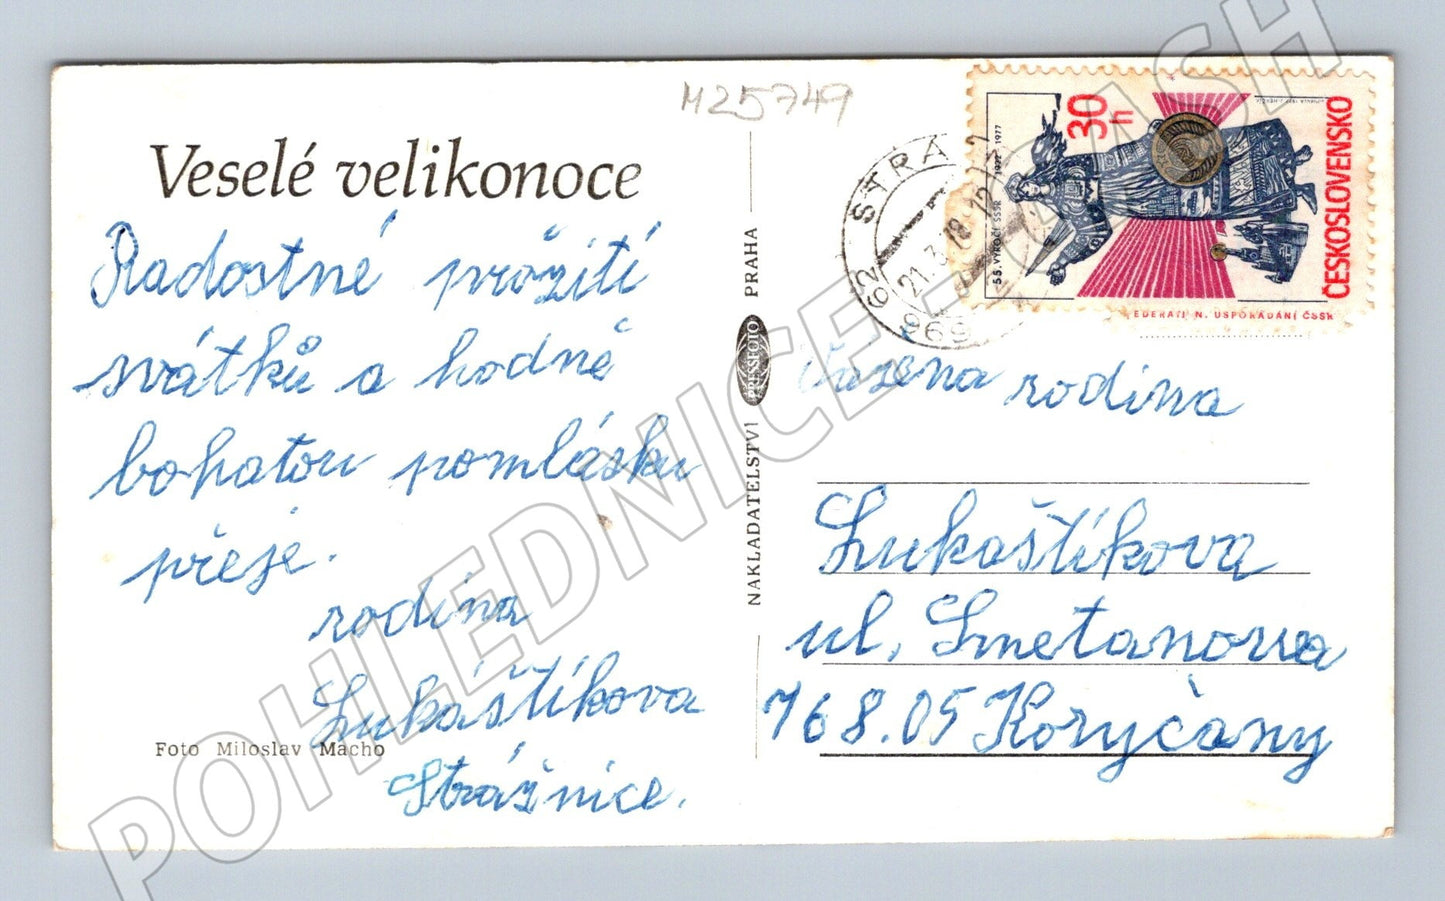 M25749
Veselé velikonoce
Radostné prožití
svátků a hodně
bohatou pomlásku
přeje.
rodina
Lukáštíkova
Strážnice.
Foto Miloslav Macho
NAKLADATELSTVÍ PRESSFOTO PRAHA
62 STRÁ
21.3.78-18
969
30 h
ČESKOSLOVENSKO
55. VÝROČÍ SSSR 1922 1977
EDERATI N. USPOŘÁDÁNÍ ČSSR
Vážena rodina
Lukaštíkova
ul. Smetanova
768.05 Koryčany
POHLEDNICE - CASH